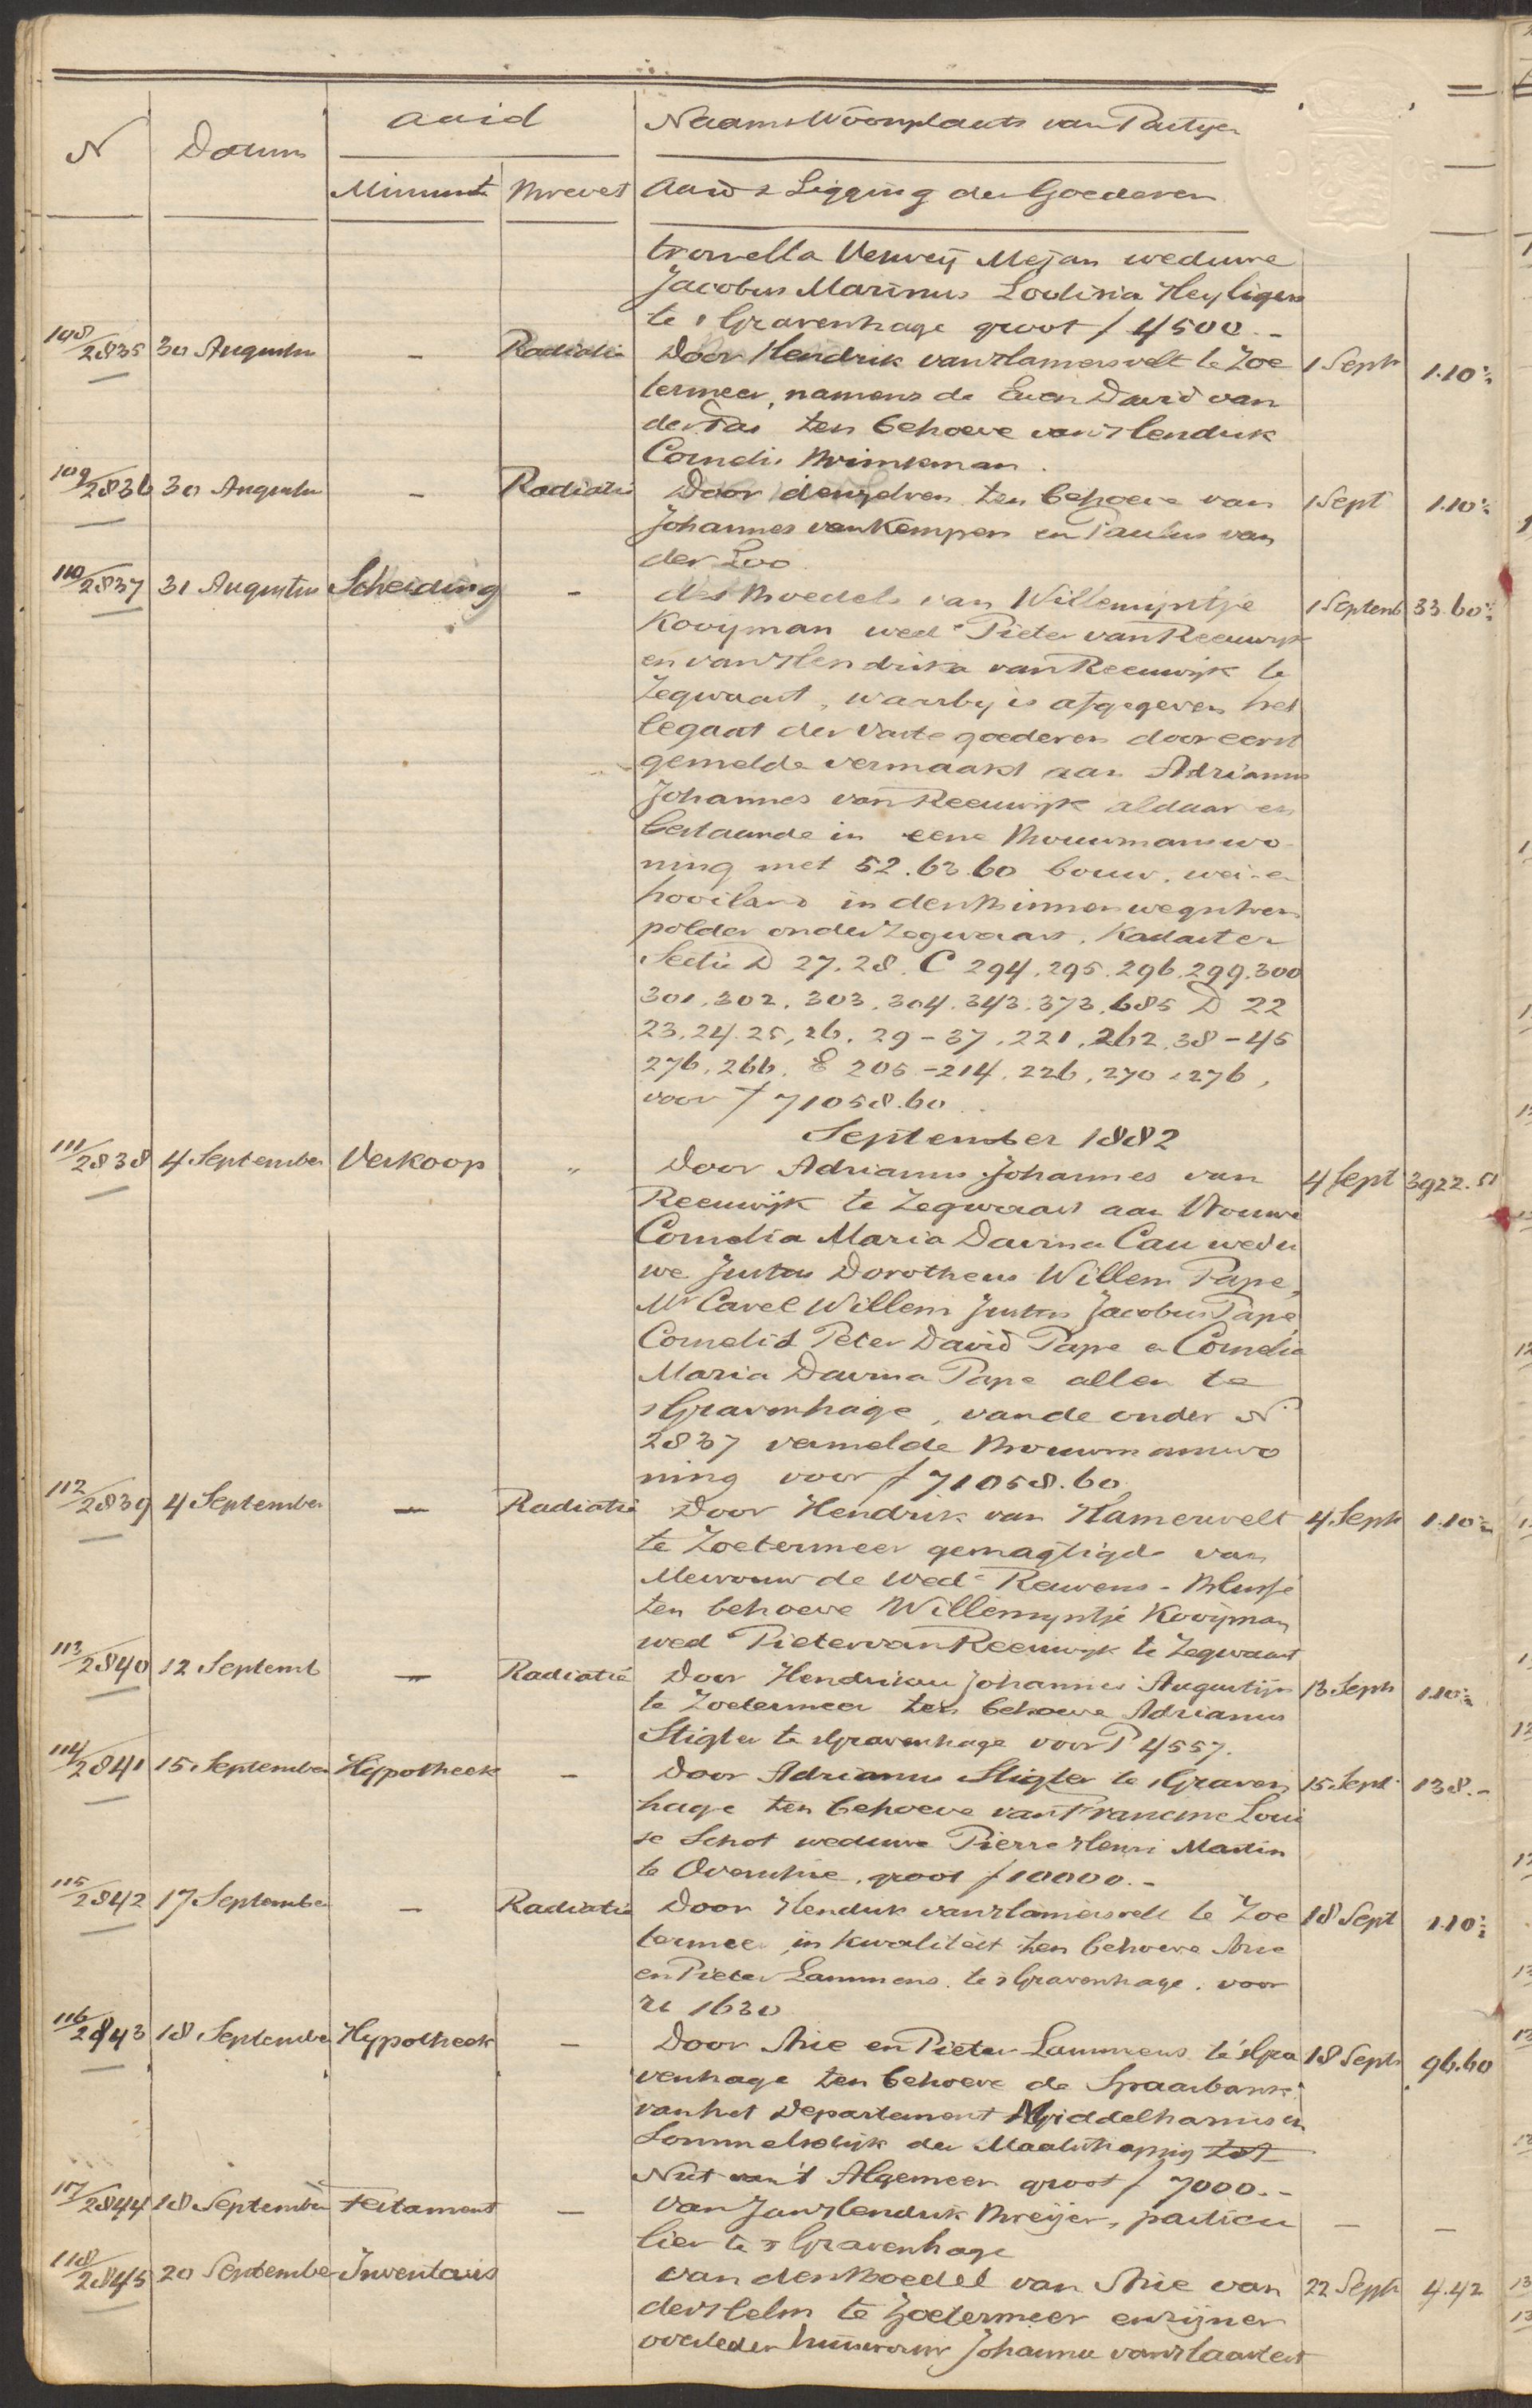 N Datum aard Naam & Woonplaats van Partijen
Minuut Brevet Aard & Ligging der Goederen
tronella Verweij Mejan weduwe
Jacobus Marinus Lodivia Heyligers
te 's Gravenhage groot f 4500.-
108/2835 30 Augustus - Radiatie Door Hendrik van Hamersvelt te Zoe 1 Sept 1.10½
termeer, namens de Erven David van
der Tas ten behoeve van Hendrik
Cornelis Brinkman.
109/2836 30 Augustus - Radiatie Door denzelven ten behoeve van 1 Sept 1.10½
Johannes van Kempen en Paulus van
der Loo.
110/2837 31 Augustus Scheiding - des Boedels van Willemijntje 1 Septemb 33.60½
Kooijman wede Pieter van Reeuwijk
en van Hendrika van Reeuwijk te
Zegwaart, waarby is afgegeven het
legaat der vaste goederen door eerst
gemelde vermaakt aan Adrianus
Johannes van Reeuwijk aldaar en
bestaande in eene Bouwmanswo
ning met 52.63.60 bouw, wei- en
hooiland in den Binnenwegschen
polder onder Zegwaart, Kadaster
Sectie D 27.28. C 294.295.296.299.300
301.302.303.304.343.373.685 D 22
23.24.25.26.29-37.221.262.38-45
276.266. E 205-214.226.270.276,
voor f 71058.60
September 1882
111/2838 4 September Verkoop " Door Adrianus Johannes van 4 Sept 3922.51
Reeuwijk te Zegwaart aan Vrouwe
Cornelia Maria Davina Cau wedu
we Justus Dorotheus Willem Pape,
Mr Carel Willem Justus Jacobus Pape,
Cornelis Peter David Pape en Cornelia
Maria Davina Pape allen te
s Gravenhage, van de onder No
2837 vermelde Bouwmanswo
ning voor f 71058.60
112/2839 4 September - Radiatie Door Hendrik van Hamersvelt 4 Sept 1.10½
te Zoetermeer gemagtigde van
Mevrouw de Wede Reuvens-Blussé
ten behoeve Willemyntje Kooijman
wed Pieter van Reeuwijk te Zegwaart
113/2840 12 Septemb - Radiatie Door Hendrikus Johannes Augustijn 13 Sept 1.10½
te Zoetermeer ten behoeve Adrianus
Stigter te s Gravenhage voor f 4557.
114/2841 15 September Hypotheek - Door Adrianus Stigter te s Graven 15 Sept 138.-
hage ten behoeve van Francine Loui
se Schot weduwe Pierre Henri Martin
te Overschie, groot f 10000.-
115/2842 17 September - Radiatie Door Hendrik van Hamersvelt te Zoe 18 Sept 1.10½
termeer, in kwaliteit ten behoeve Arie
en Pieter Lammens te s Gravenhage. voor
1630
116/2843 18 September Hypotheek - Door Arie en Pieter Lammens te s Gra 18 Sept 96.60
venhage ten behoeve de Spaarbank
van het Departement Middelharnis en
Sommelsdijk der Maatschappij tot
Nut van 't Algemeen groot f 7000.-
117/2844 18 September Testament - van Jan Hendrik Breijer, particu - -
lier te s Gravenhage
118/2845 20 September Inventaris van den Boedel van Arie van 22 Sept 4.42
der Helm te Zoetermeer en zijner
overleden huisvrouw Johanna van